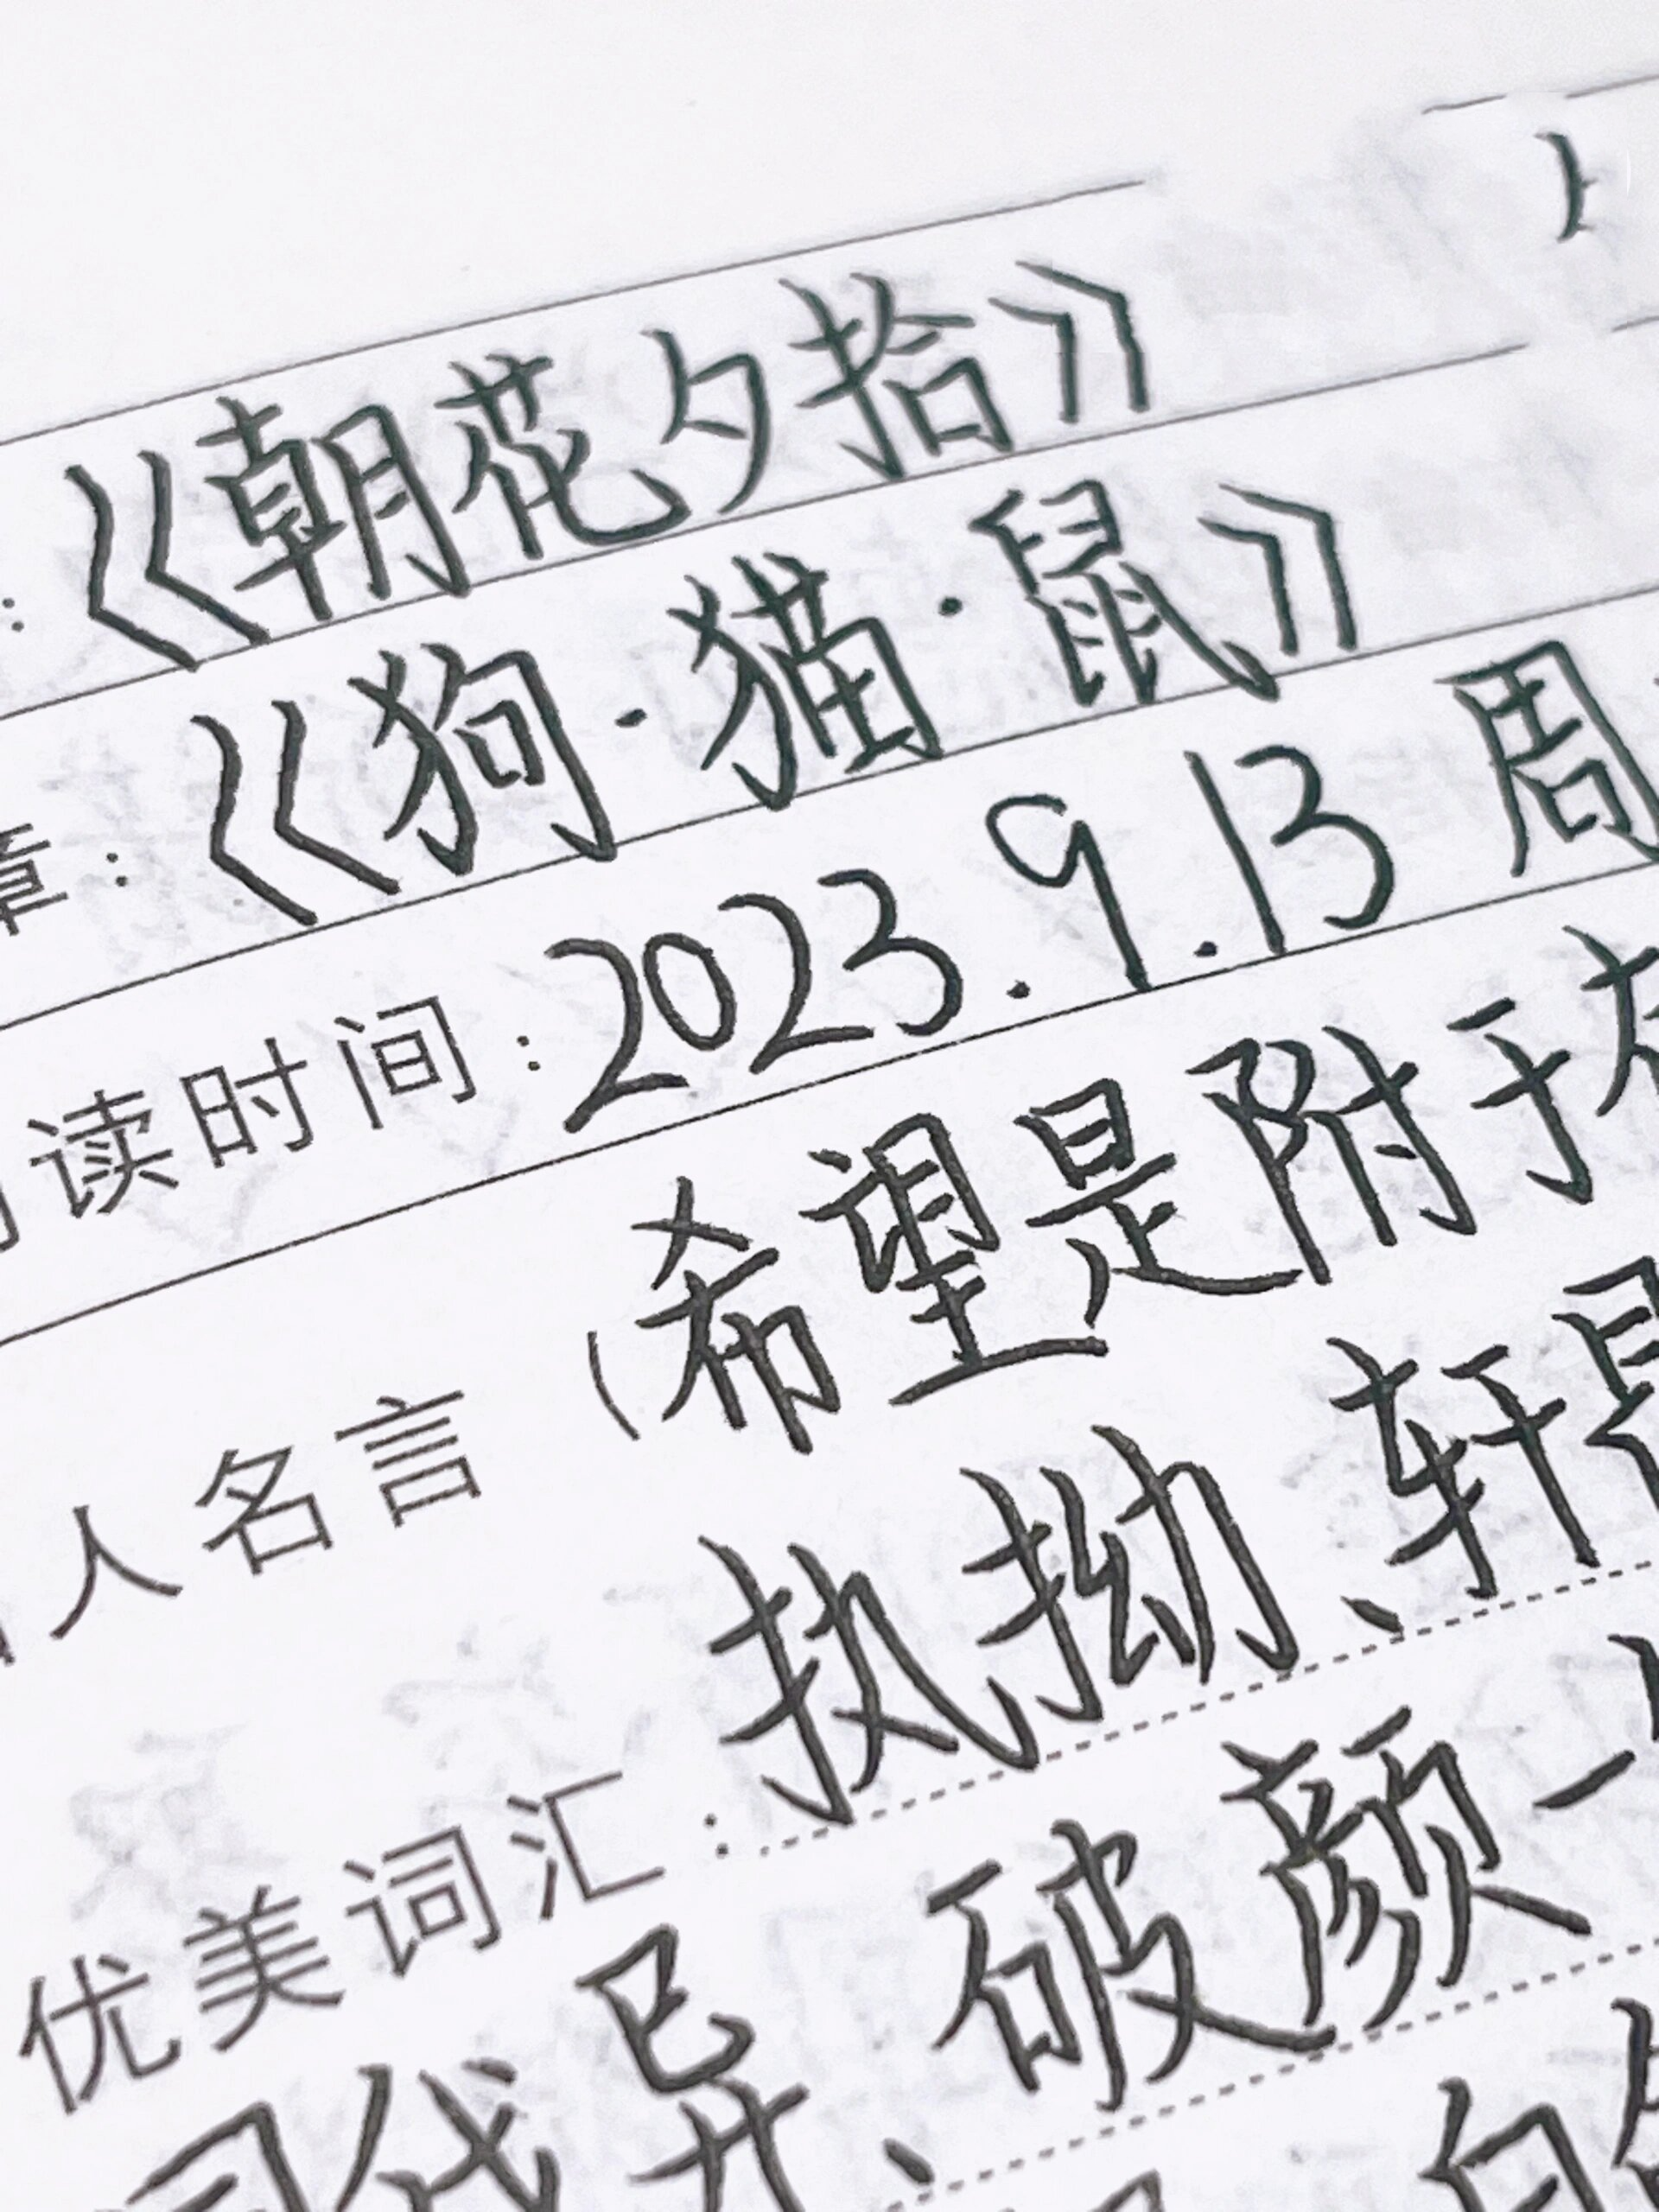 ：《朝花夕拾》
章：《狗·猫·鼠》
读时间：2023.9.13 周
人名言（希望是附于
优美词汇：执拗、轩
同伐异、破颜一